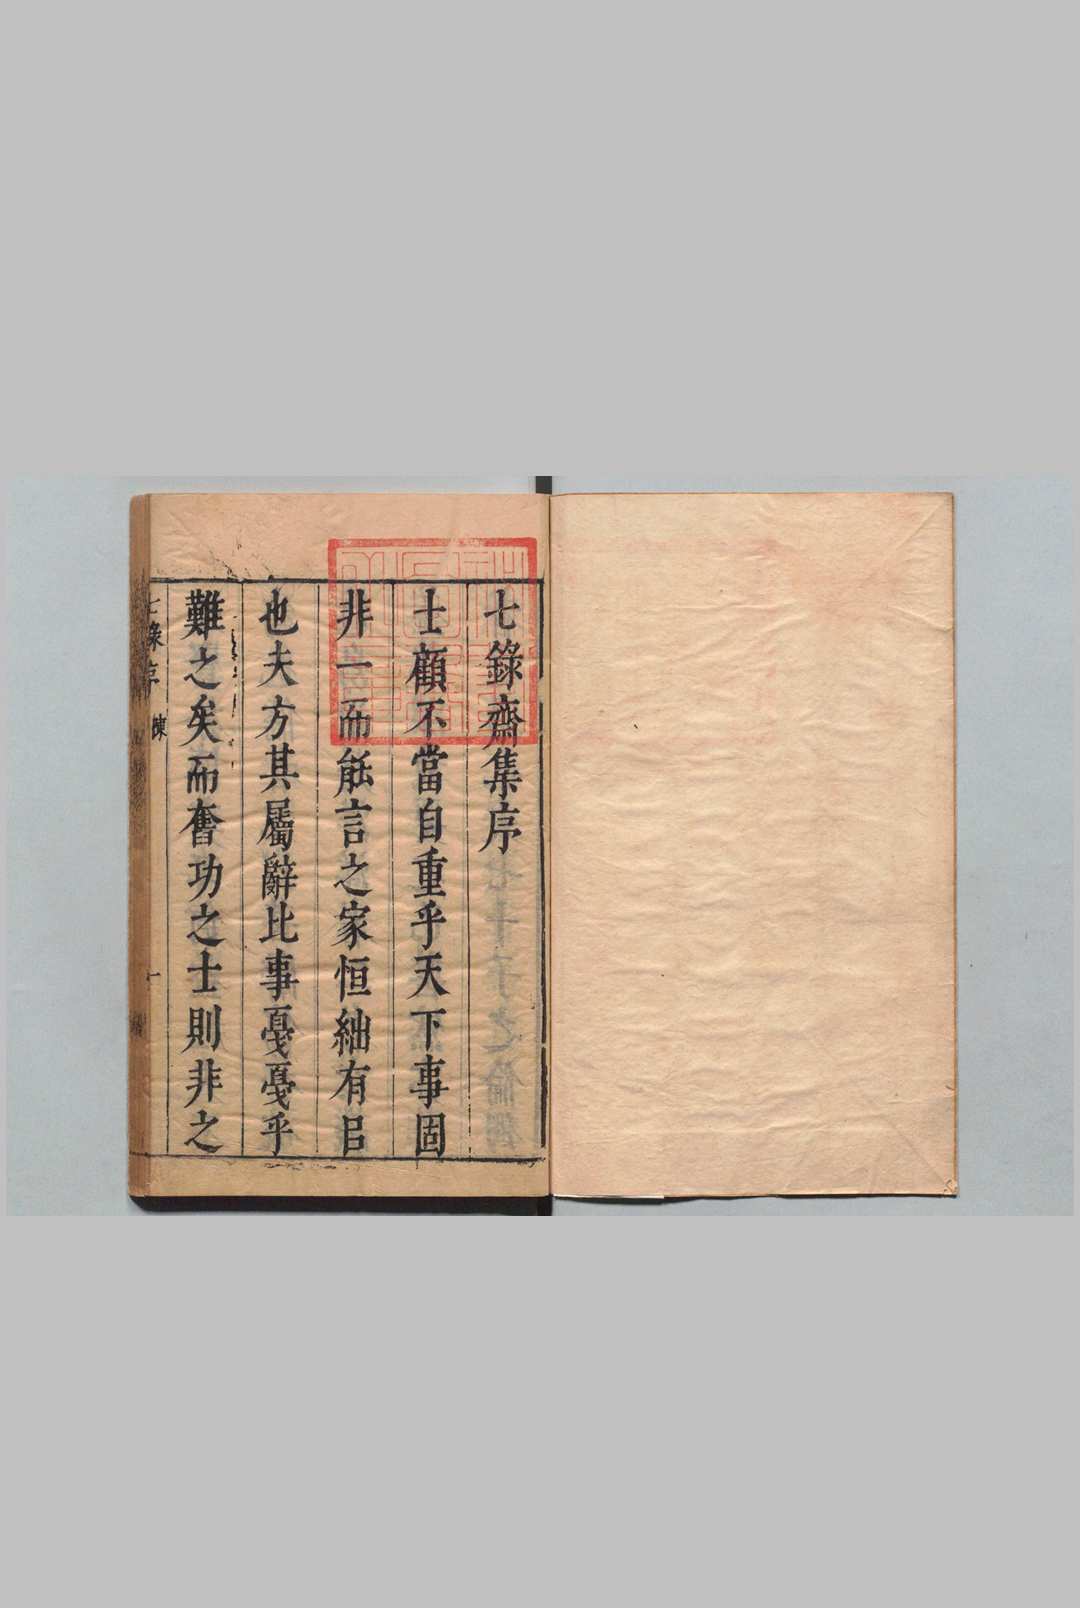 七錄齋集序
士顧不當自重乎天下事固
非一而能言之家恒紬有㠯
也夫方其屬辭比事戞戞乎
難之矣而奮功之士則非之
七錄序
一